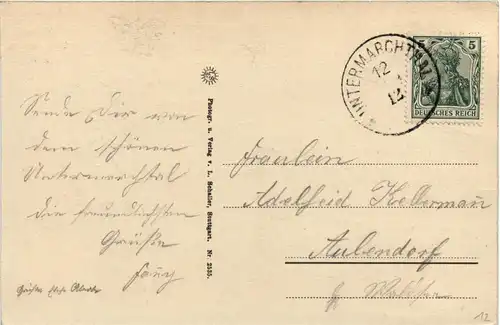 Sende Dir von
dem schönen
Untermarchtal
die freundlichsten
Grüße
Fanny
Photogr. u. Verlag v. L. Schaller, Stuttgart. Nr. 2555.
UNTERMARCHTHAL
12
12
5 5
DEUTSCHES REICH
Fräulein
Adelheid Kellermann
Aulendorf
12